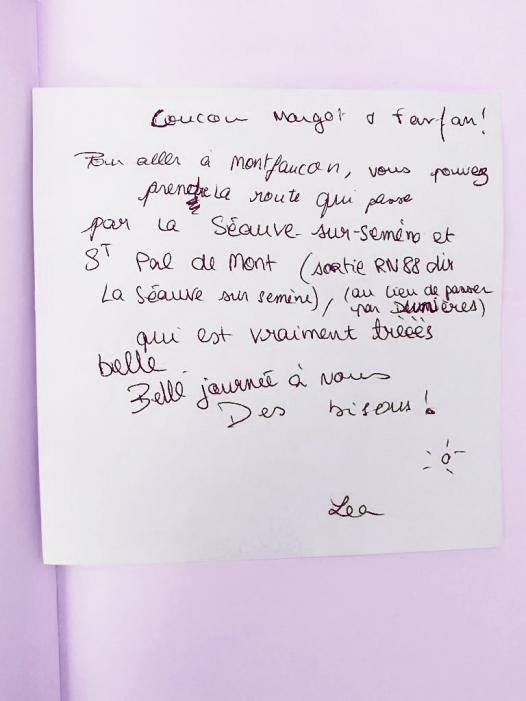 Coucou Margot & Farfan!
Pour aller à Montfaucon, vous pouvez
prendre la route qui passe
par la Séauve-sur-semène et
St Pal de Mont (sortie RN88 dir
La Séauve sur semène), (au lieu de passer
par Dunières)
qui est vraiment trèèès
belle.
Belle journée à vous
Des bisous!
Lea